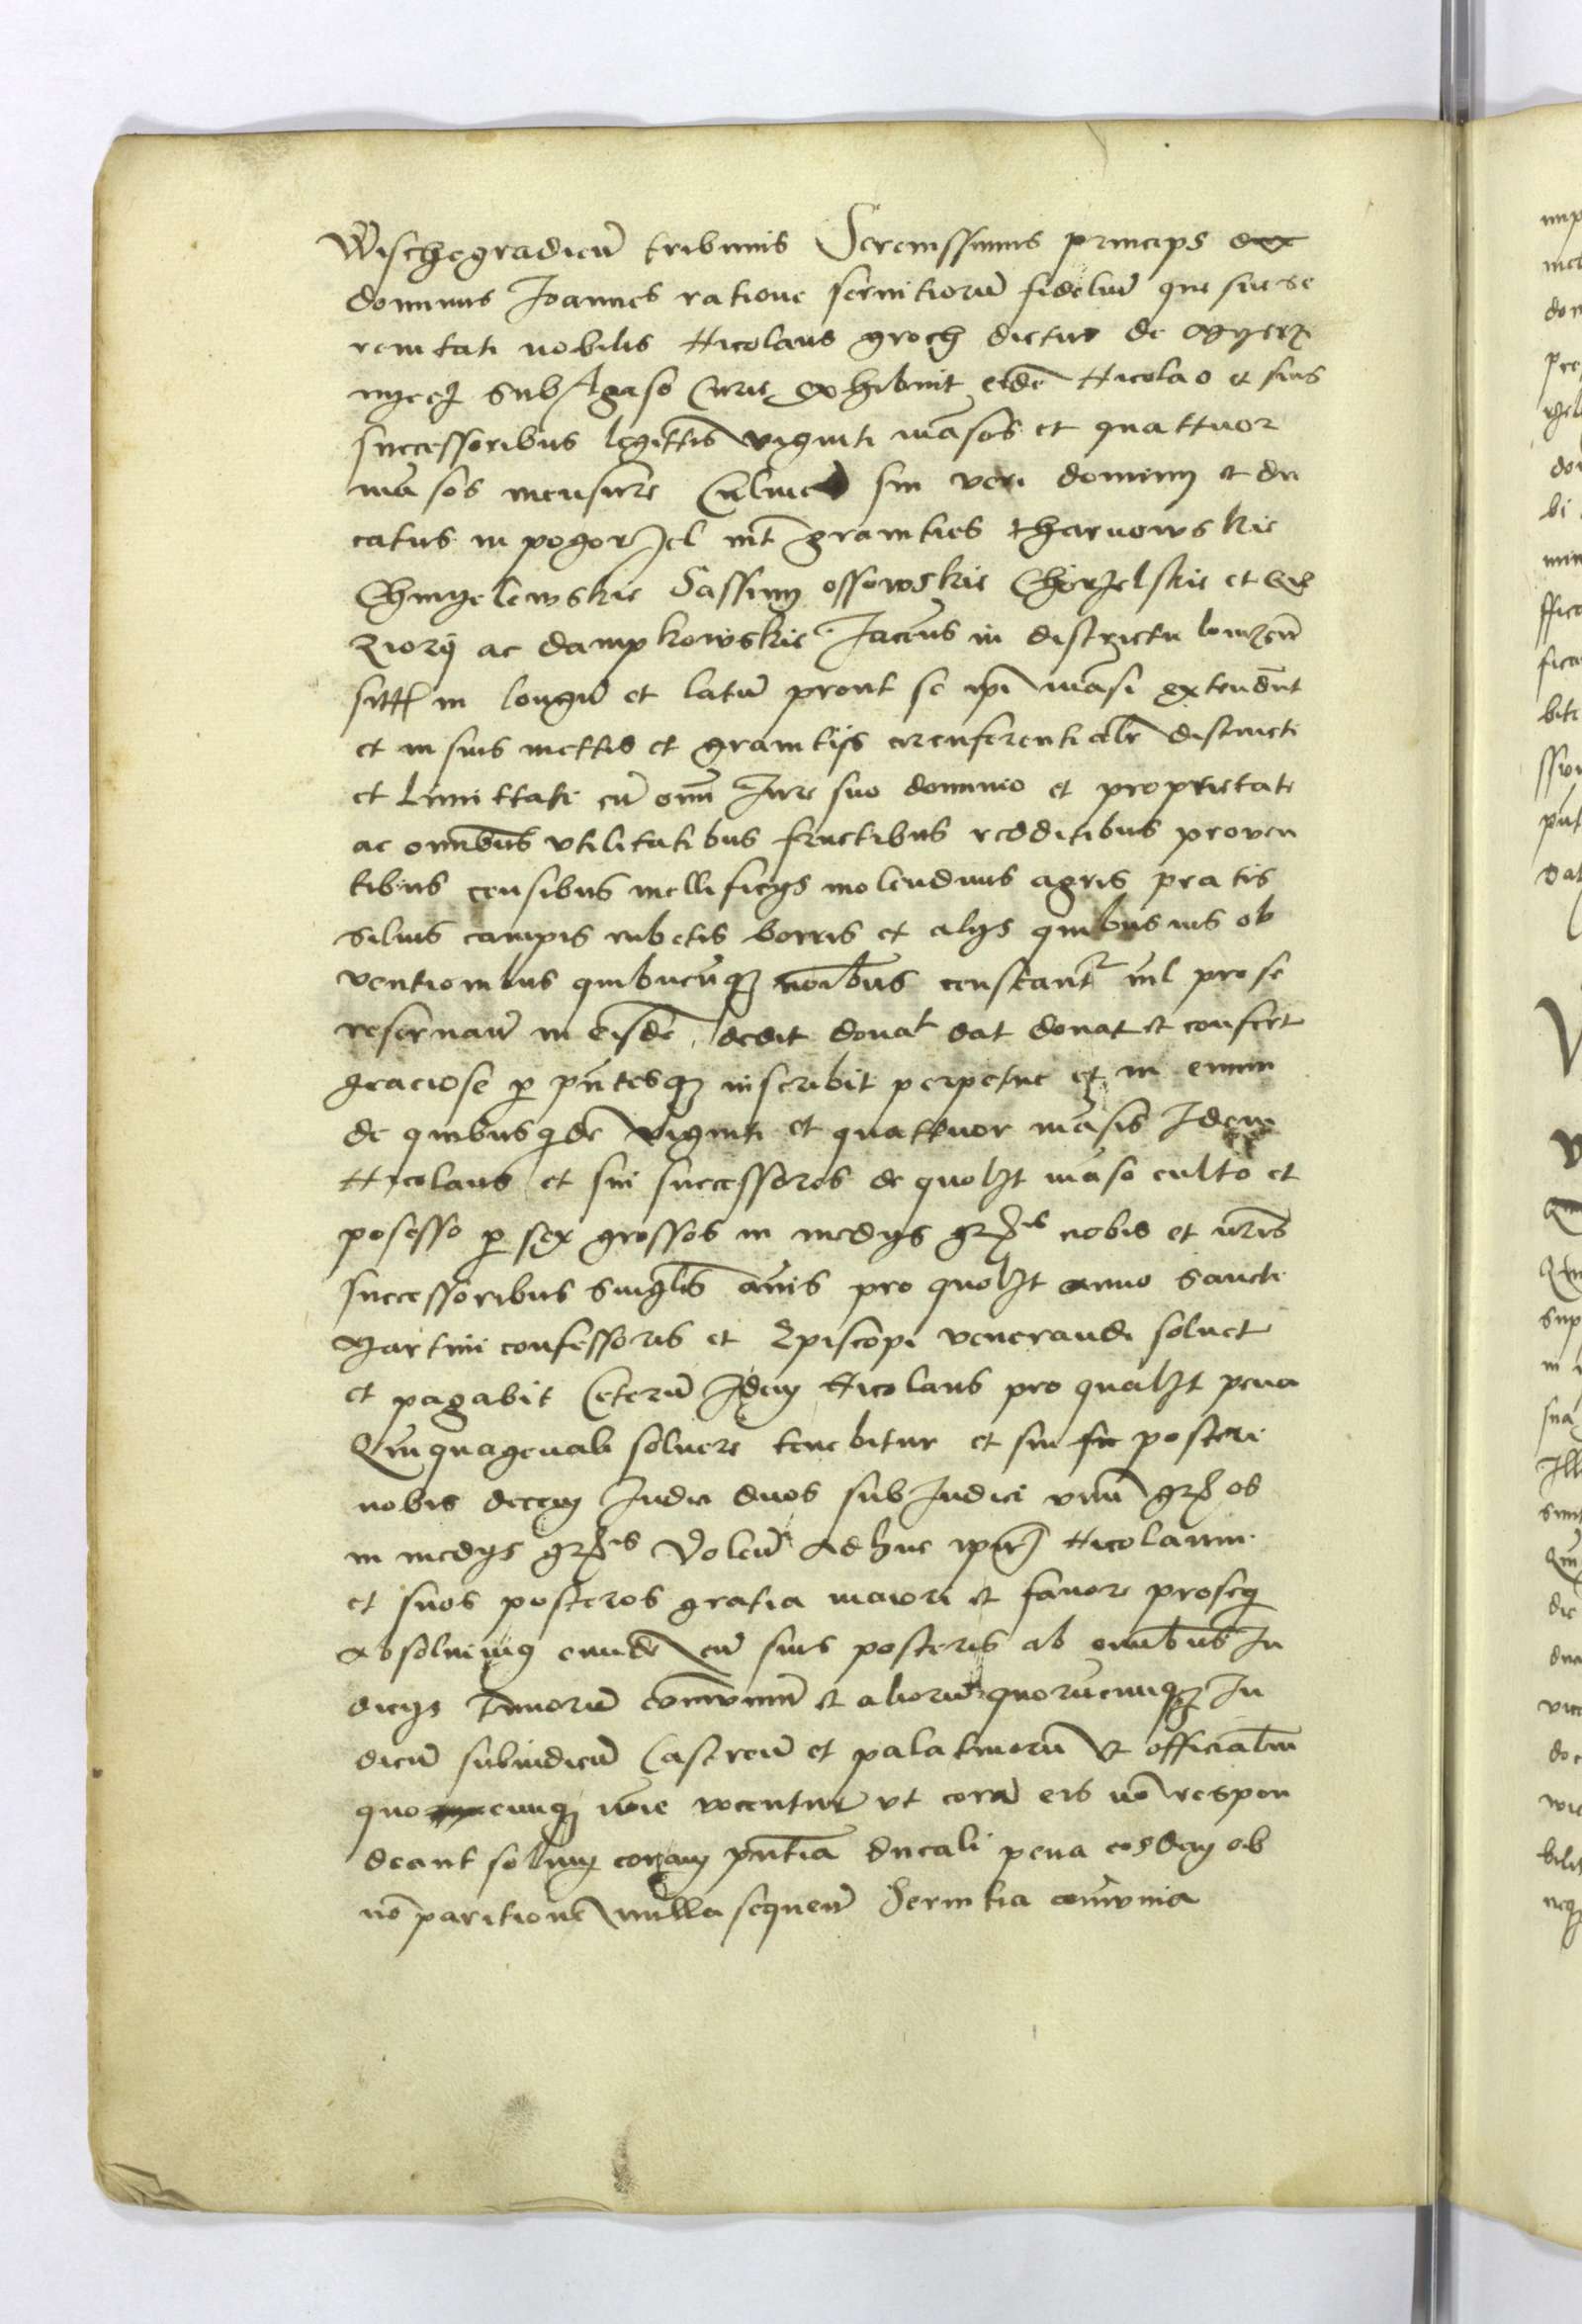 Wischegradien̄ tribunis Serenissimus princeps
dominus Joannes ratione servitiorū fideliū que sue se
renitati nobilis Nicolaus groch dictus de
subAgaso Curie exhibuit eidē Nicolao et suis
successoribus legittis viginti māsos et quattuor
māsos mensure Culmen sui veri dominij et du
catus in pogorzel int granities tharnowskie
Chmyelewskie Sassiny ossowskie Chorzelskie et
ziory ac dampkowskie Jacen̄s in districtu lomzen̄
sitt in longū et latū prout se ipi māsi extendūt
et in suis mettis et granitijs circūferentialr distincti
et limittati cū omi Jure suo dominio et proprietate
ac omībus vtilitatibus fructibus redditibus proven
tibus censibus mellificijs molendinis agris pratis
silvis campis rubetis borris et alijs quibusuis ob
ventionibus quibucūq noībus censeant nil pro se
reservan̄ in eisdē dedit donat dat donat et confert
graciose p pn̄tesq inscribit perpetue et in evum
de quibusqdē viginti et quattuor māsis Idem
Nicolaus et sui successores de quolzt māso culto et
posesso p sex grossos in medijs grs nobis et nr̄is
successoribus singlis an̄is pro quolzt anno sancti
Martini confessoris et Episcopi venerandi solvet
et pagabit Ceterū Idem Nicolaus pro qualzt pena
Quinquagenali solvere tenebitur et sui posteri
nobis decem Judici duos subJudici vnū gros
in medijs grs Volen̄ Adhuc ipm Nicolaum
et suos posteros gratia maiori et favore proseq
Absolvimq eundē cū suis posteris ab omībus Ju
dicijs terminorū cōmuniū et aliorū quorūcunq Ju
dicū subiudicū Castren̄ et palatinorū et officialm
quocunq nōie vocentur vt corā eis nō respon
deant solum coram pn̄tia ducali pena eosdem ob
nō paritionē nulla sequen̄ Servitia cōmunia